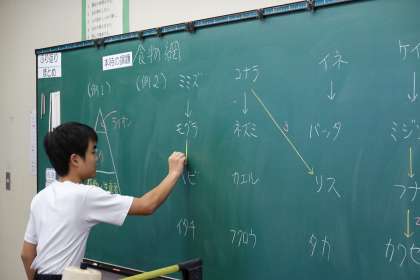 ふり返り
まとめ
本時の課題
食物網
(例1)
(例2)
ライオン
ミミズ
モグラ
ヘビ
イタチ
コナラ
ネズミ
カエル
フクロウ
イネ
バッタ
リス
タカ
ケイ
ミジ
フナ
カワセ